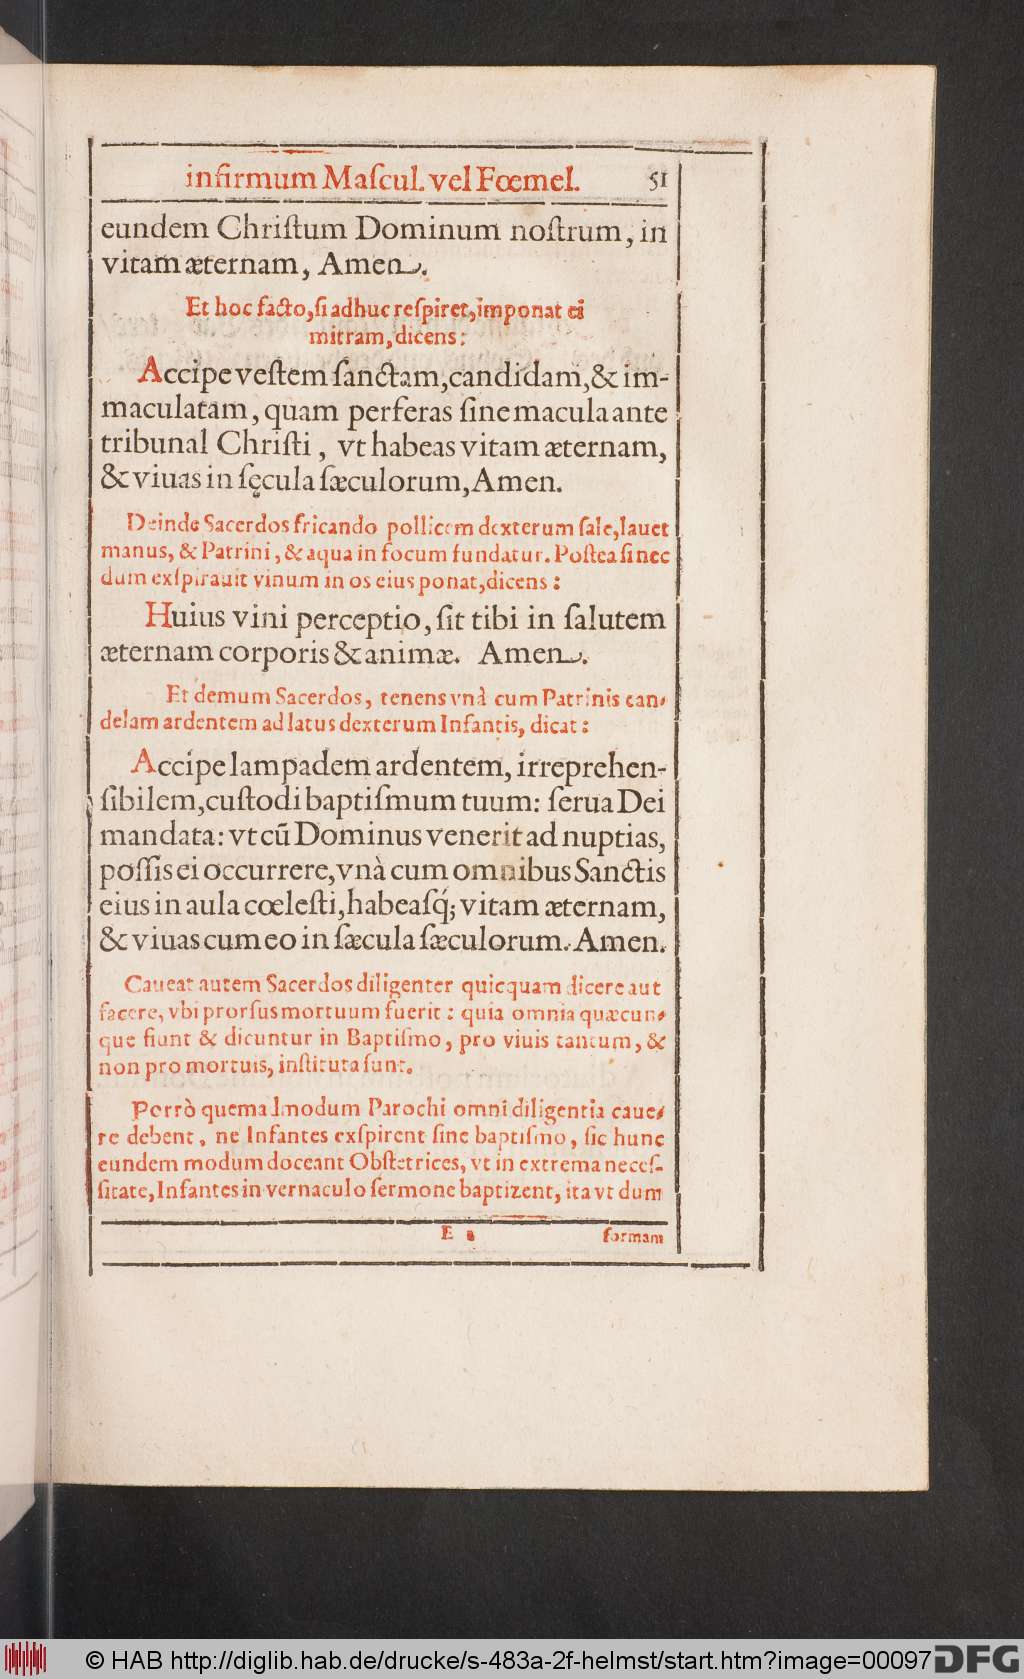 infirmum Maſcul. vel Fœmel. 51
eundem Chriſtum Dominum noſtrum, in
vitam æternam, Amen.
Et hoc facto, ſi adhuc reſpiret, imponat ei
mitram, dicens:
Accipe veſtem ſanctam, candidam, & im-
maculatam, quam perferas ſine macula ante
tribunal Chriſti, vt habeas vitam æternam,
& viuas in ſęcula ſæculorum, Amen.
Deinde Sacerdos fricando pollicem dexterum ſale, lauet
manus, & Patrini, & aqua in focum fundatur. Poſtea ſi nec
dum exſpirauit vinum in os eius ponat, dicens:
Huius vini perceptio, ſit tibi in ſalutem
æternam corporis & animæ. Amen.
Et demum Sacerdos, tenens vnà cum Patrinis can-
delam ardentem ad latus dexterum Infantis, dicat:
Accipe lampadem ardentem, irreprehen-
ſibilem, cuſtodi baptiſmum tuum: ſerua Dei
mandata: vt cū Dominus venerit ad nuptias,
poſſis ei occurrere, vnà cum omnibus Sanctis
eius in aula cœleſti, habeaſq́; vitam æternam,
& viuas cum eo in ſæcula ſæculorum. Amen.
Caueat autem Sacerdos diligenter quicquam dicere aut
facere, vbi prorſus mortuum fuerit: quia omnia quæcun-
que fiunt & dicuntur in Baptiſmo, pro viuis tantum, &
non pro mortuis, inſtituta ſunt.
Porrò quemadmodum Parochi omni diligentia caue-
re debent, ne Infantes exſpirent ſine baptiſmo, ſic hunc
eundem modum doceant Obſtetrices, vt in extrema neceſ-
ſitate, Infantes in vernaculo ſermone baptizent, ita vt dum
E
formam
© HAB http://diglib.hab.de/drucke/s-483a-2f-helmst/start.htm?image=00097
DFG